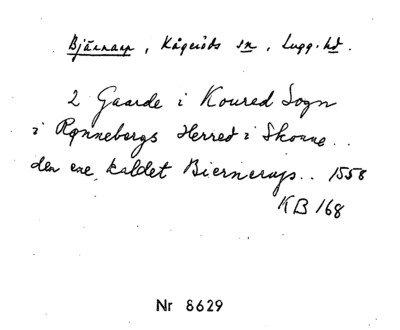 Bjärnarp, Kågeröds sn, Lugg. hd.
2 Gaarde i Koured Sogn
i Rønnebergs Herred i Skonne..
den ene kaldet Biernerups.. 1558
KB 168
Nr 8629